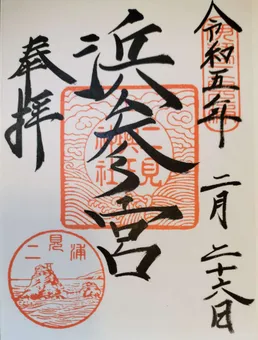 令和五年
二月二十六日
浜参宮
二見
神社
奉拝
二見浦